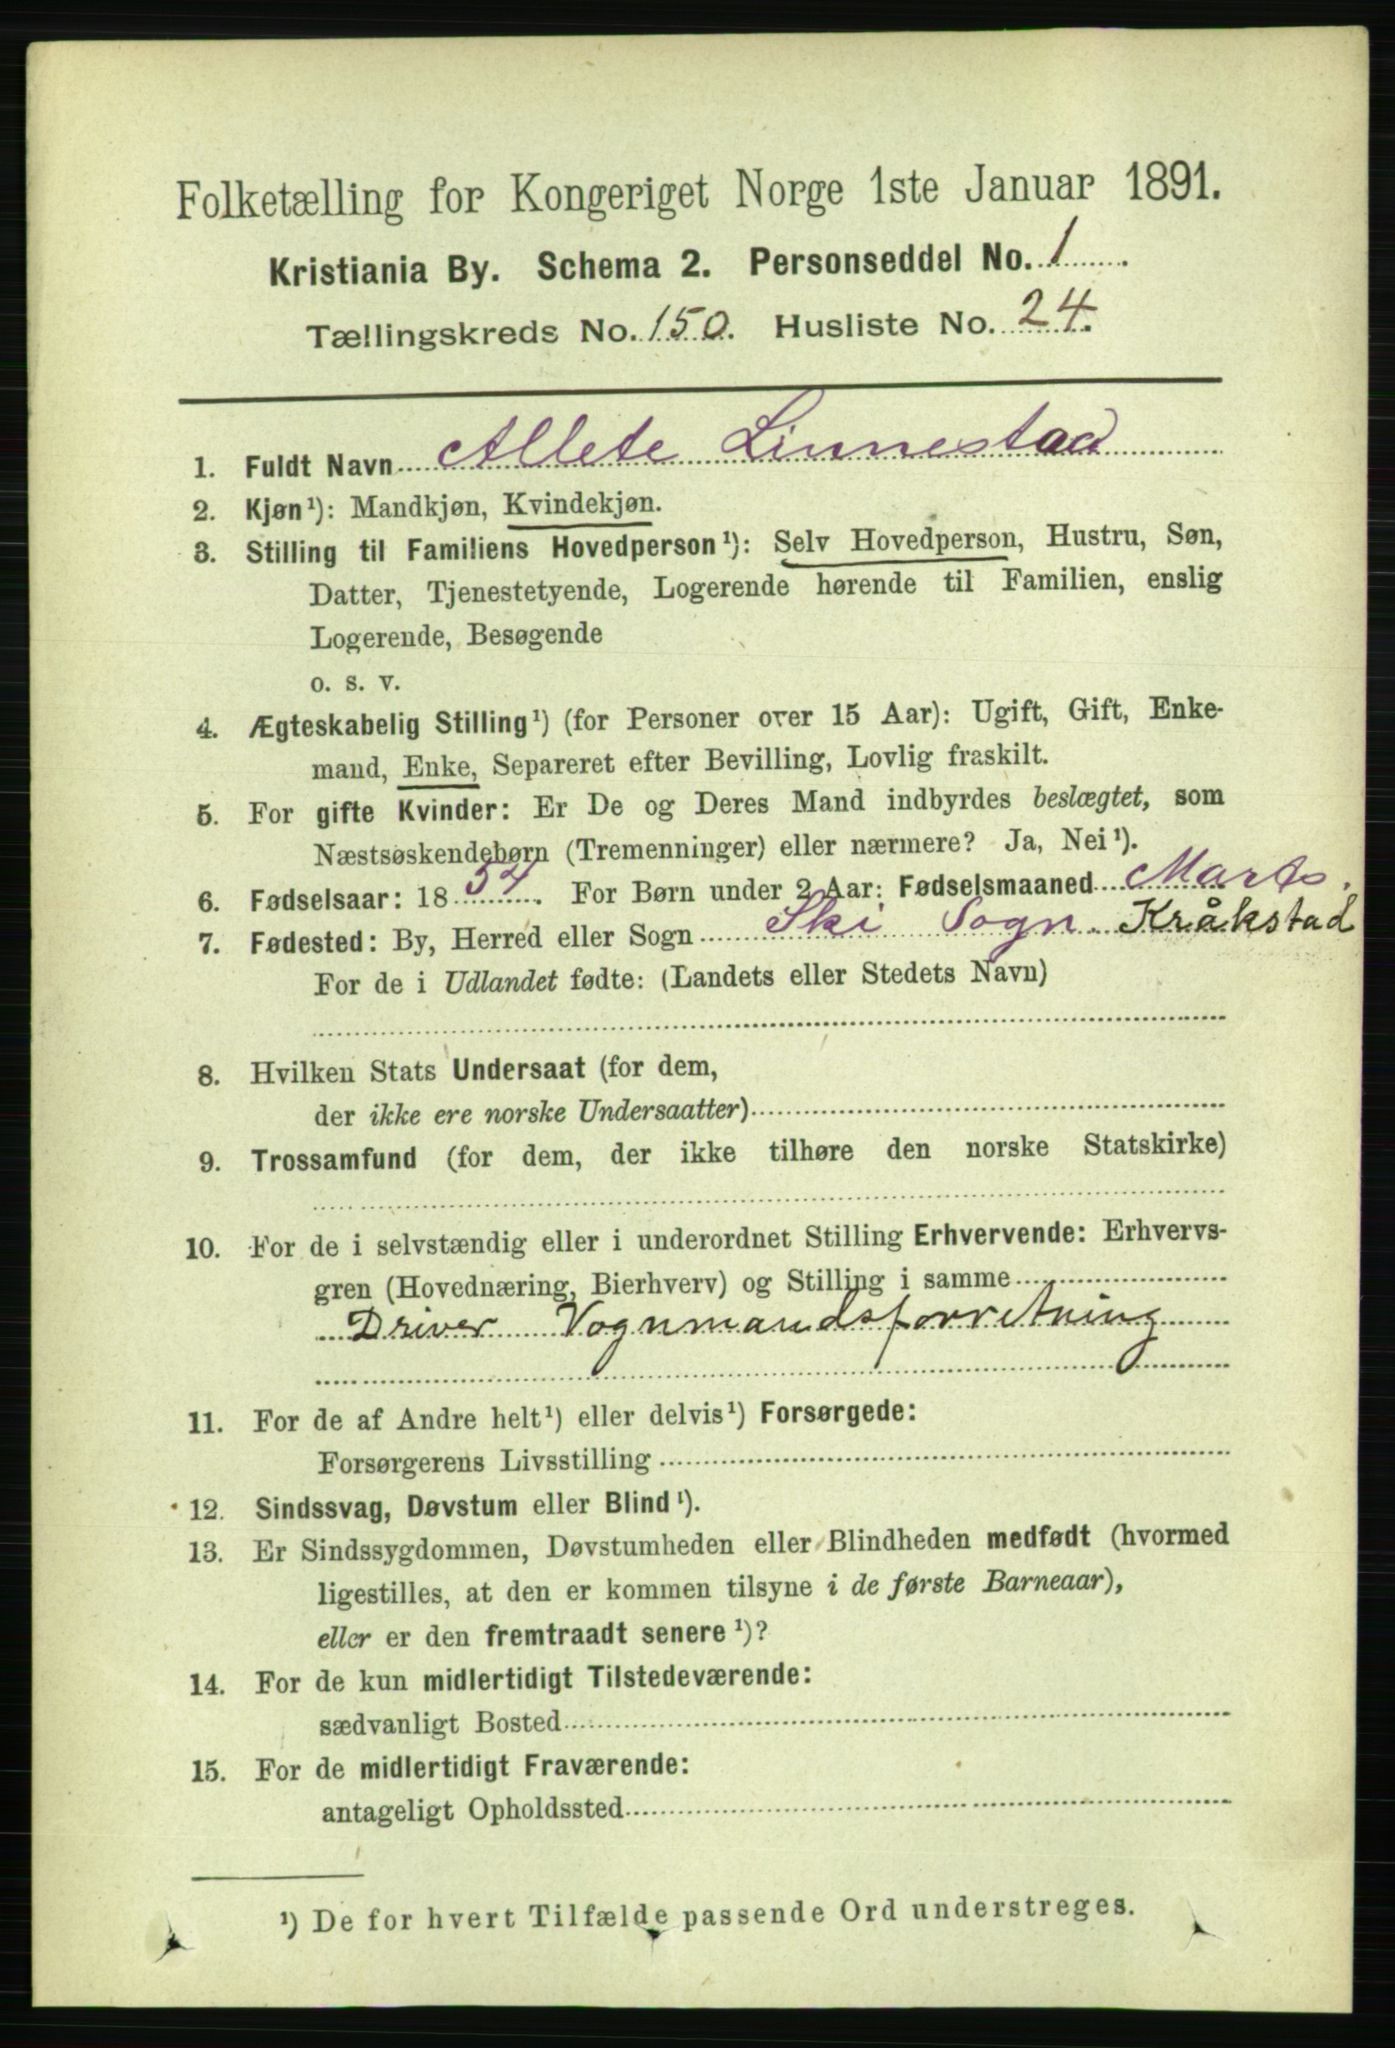 Folketælling for Kongeriget Norge 1ste Januar 1891.
Kristiania By. Schema 2. Personseddel No. 1
Tællingskreds No. 150. Husliste No. 24.
1. Fuldt Navn Allete Linnestad
2. Kjøn¹): Mandkjøn, Kvindekjøn.
3. Stilling til Familiens Hovedperson¹): Selv Hovedperson, Hustru, Søn,
Datter, Tjenestetyende, Logerende hørende til Familien, enslig
Logerende, Besøgende
o. s. v.
4. Ægteskabelig Stilling¹) (for Personer over 15 Aar): Ugift, Gift, Enke-
mand, Enke, Separeret efter Bevilling, Lovlig fraskilt.
5. For gifte Kvinder: Er De og Deres Mand indbyrdes beslægtet, som
Næstsøskendebørn (Tremenninger) eller nærmere? Ja, Nei¹).
6. Fødselsaar: 1854. For Børn under 2 Aar: Fødselsmaaned Marts.
7. Fødested: By, Herred eller Sogn Ski Sogn. Kråkstad
For de i Udlandet fødte: (Landets eller Stedets Navn)
8. Hvilken Stats Undersaat (for dem,
der ikke ere norske Undersaatter)
9. Trossamfund (for dem, der ikke tilhøre den norske Statskirke)
10. For de i selvstændig eller i underordnet Stilling Erhvervende: Erhvervs-
gren (Hovednæring, Bierhverv) og Stilling i samme
Driver Vognmandsforretning
11. For de af Andre helt¹) eller delvis¹) Forsørgede:
Forsørgerens Livsstilling
12. Sindssvag, Døvstum eller Blind¹).
13. Er Sindssygdommen, Døvstumheden eller Blindheden medfødt (hvormed
ligestilles, at den er kommen tilsyne i de første Barneaar),
eller er den fremtraadt senere¹)?
14. For de kun midlertidigt Tilstedeværende:
sædvanligt Bosted
15. For de midlertidigt Fraværende:
antageligt Opholdssted
¹) De for hvert Tilfælde passende Ord understreges.